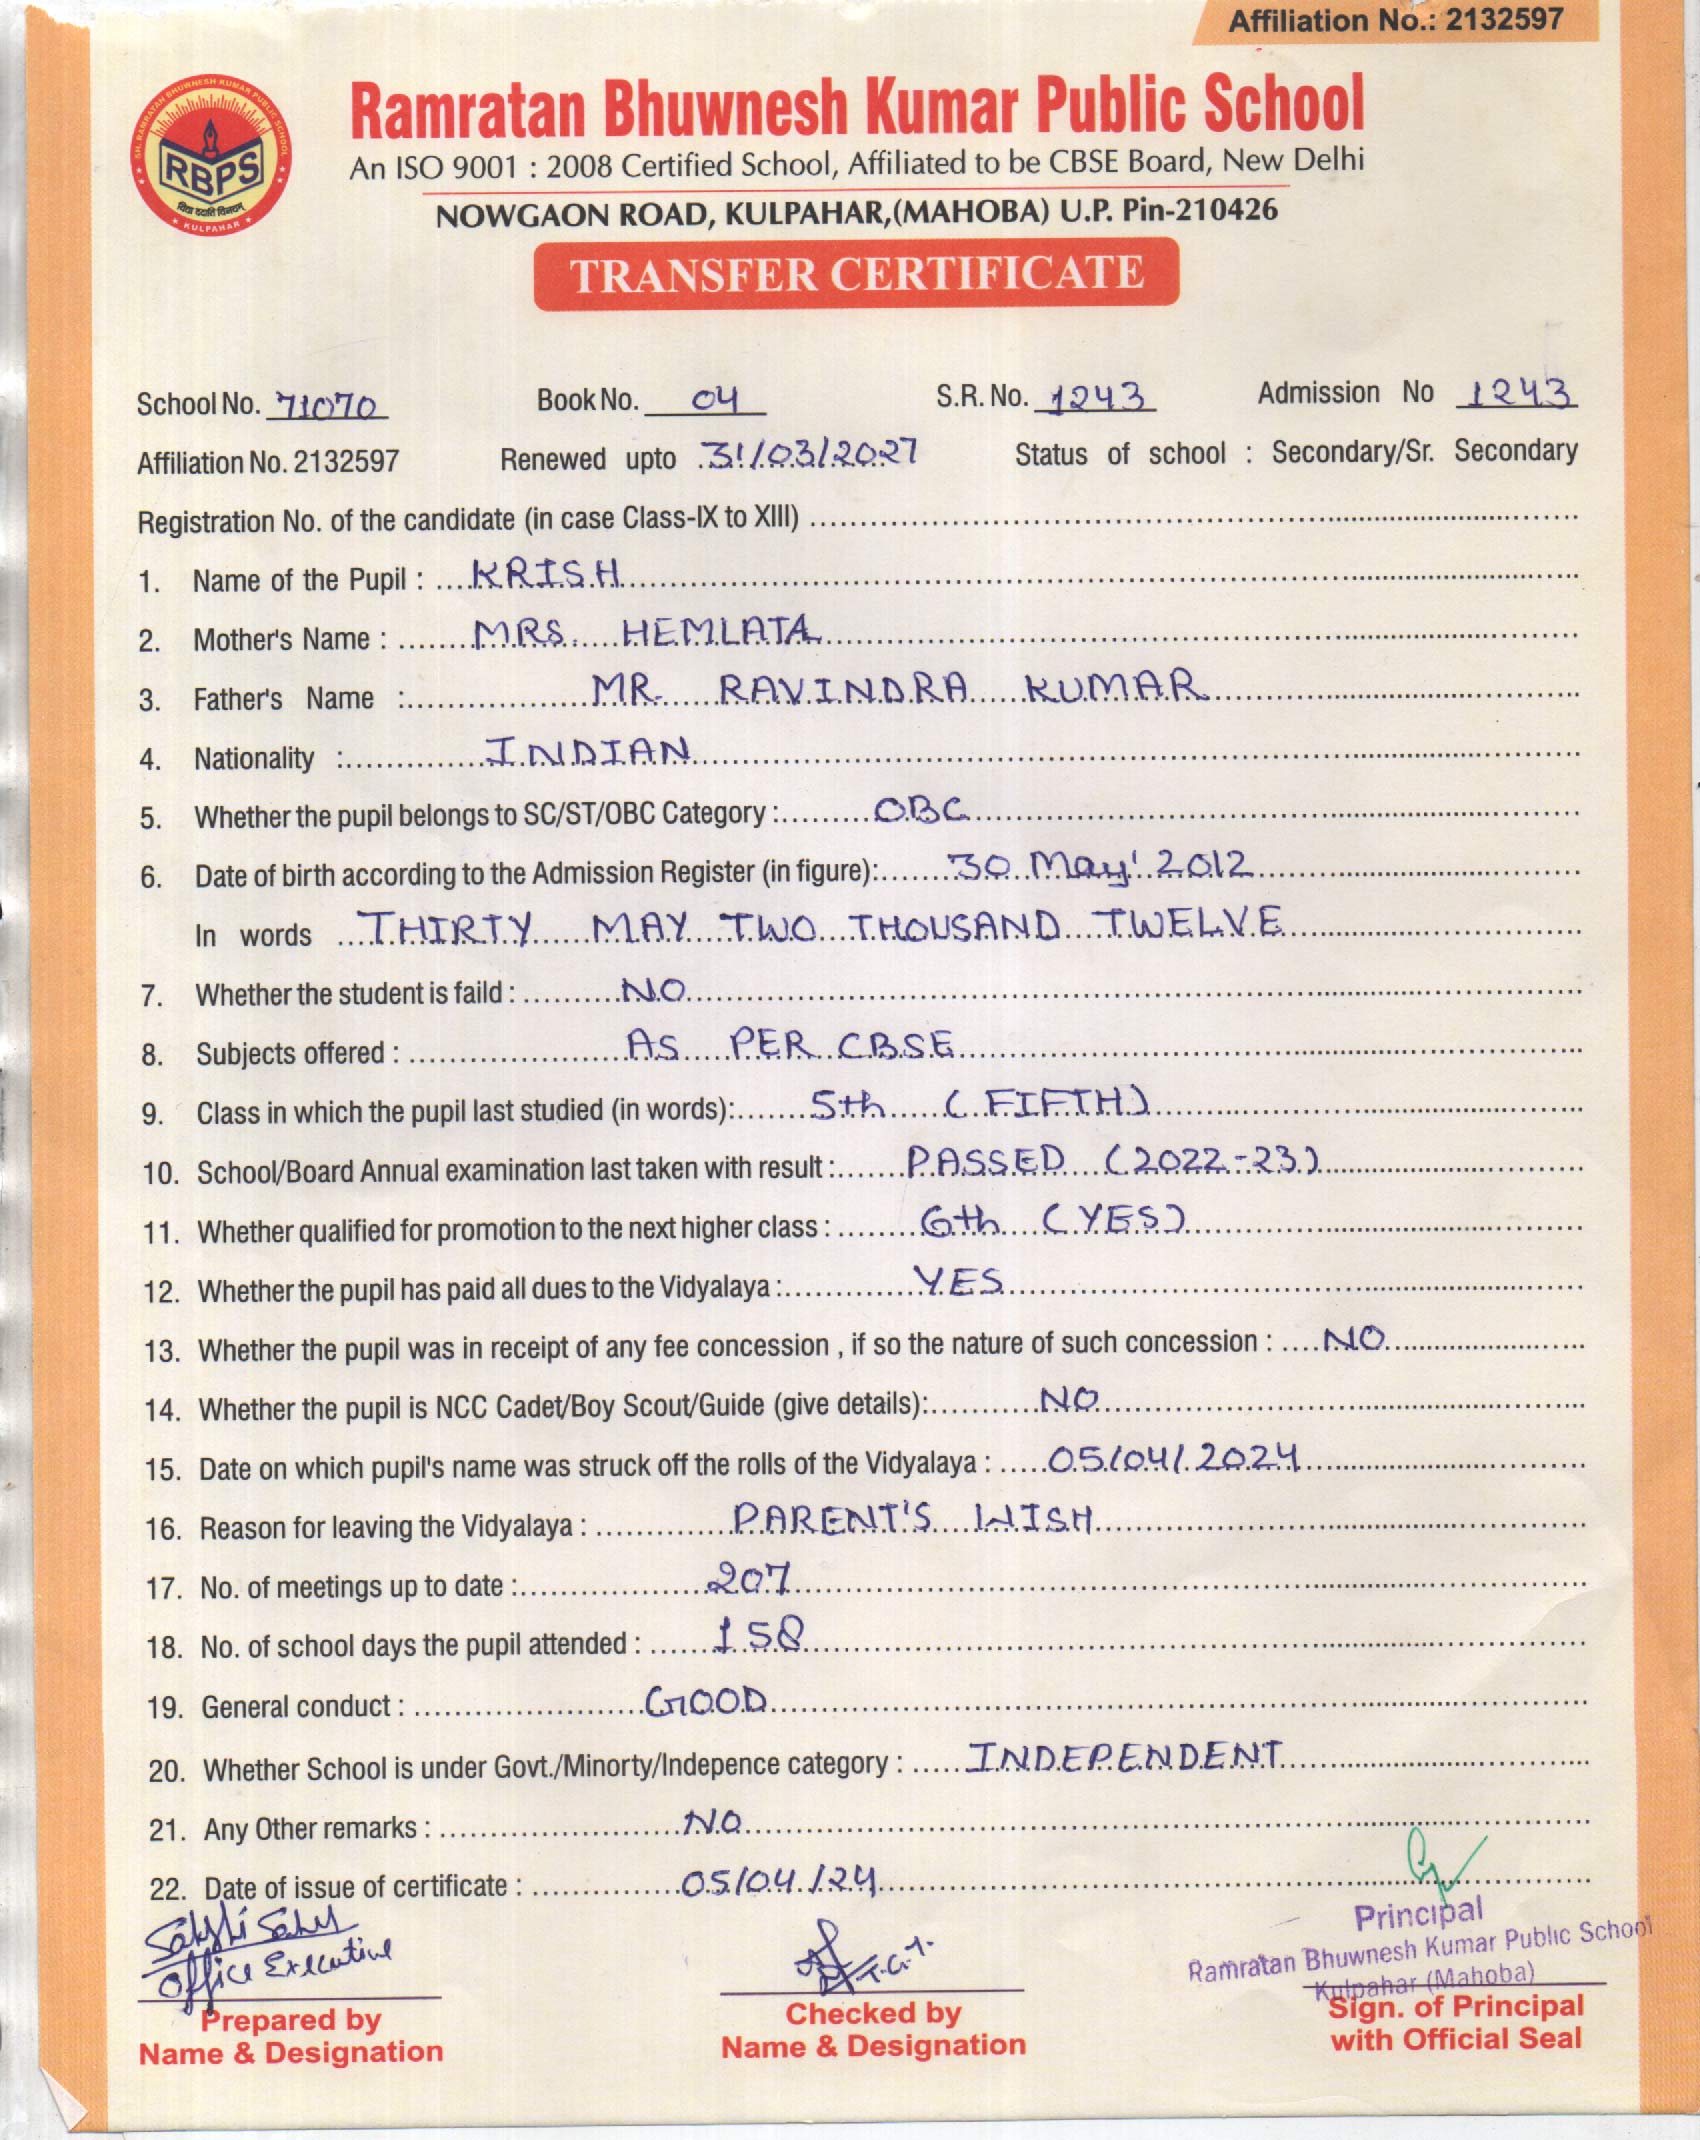 Affiliation No.: 2132597
SH. RAMRATAN BHUWNESH KUMAR PUBLIC SCHOOL
RBPS
विद्या ददाति विनयम्
KULPAHAR
Ramratan Bhuwnesh Kumar Public School
An ISO 9001 : 2008 Certified School, Affiliated to be CBSE Board, New Delhi
NOWGAON ROAD, KULPAHAR,(MAHOBA) U.P. Pin-210426
TRANSFER CERTIFICATE
School No. 71070 Book No. 04 S.R. No. 1243 Admission No 1243
Affiliation No. 2132597 Renewed upto 31/03/2027 Status of school : Secondary/Sr. Secondary
Registration No. of the candidate (in case Class-IX to XIII)
1. Name of the Pupil : KRISH
2. Mother's Name : MRS. HEMLATA
3. Father's Name : MR. RAVINDRA KUMAR
4. Nationality : INDIAN
5. Whether the pupil belongs to SC/ST/OBC Category : OBC
6. Date of birth according to the Admission Register (in figure): 30 May' 2012
In words THIRTY MAY TWO THOUSAND TWELVE
7. Whether the student is faild : NO
8. Subjects offered : AS PER CBSE
9. Class in which the pupil last studied (in words): 5th (FIFTH)
10. School/Board Annual examination last taken with result : PASSED (2022-23)
11. Whether qualified for promotion to the next higher class : 6th (YES)
12. Whether the pupil has paid all dues to the Vidyalaya : YES
13. Whether the pupil was in receipt of any fee concession , if so the nature of such concession : NO
14. Whether the pupil is NCC Cadet/Boy Scout/Guide (give details): NO
15. Date on which pupil's name was struck off the rolls of the Vidyalaya : 05/04/2024
16. Reason for leaving the Vidyalaya : PARENT'S WISH
17. No. of meetings up to date : 207
18. No. of school days the pupil attended : 158
19. General conduct : GOOD
20. Whether School is under Govt./Minorty/Indepence category : INDEPENDENT
21. Any Other remarks : NO
22. Date of issue of certificate : 05/04/24
Sakshi Sahu
Office Executive
T.G.T.
Principal
Ramratan Bhuwnesh Kumar Public School
Kulpahar (Mahoba)
Prepared by
Name & Designation
Checked by
Name & Designation
Sign. of Principal
with Official Seal